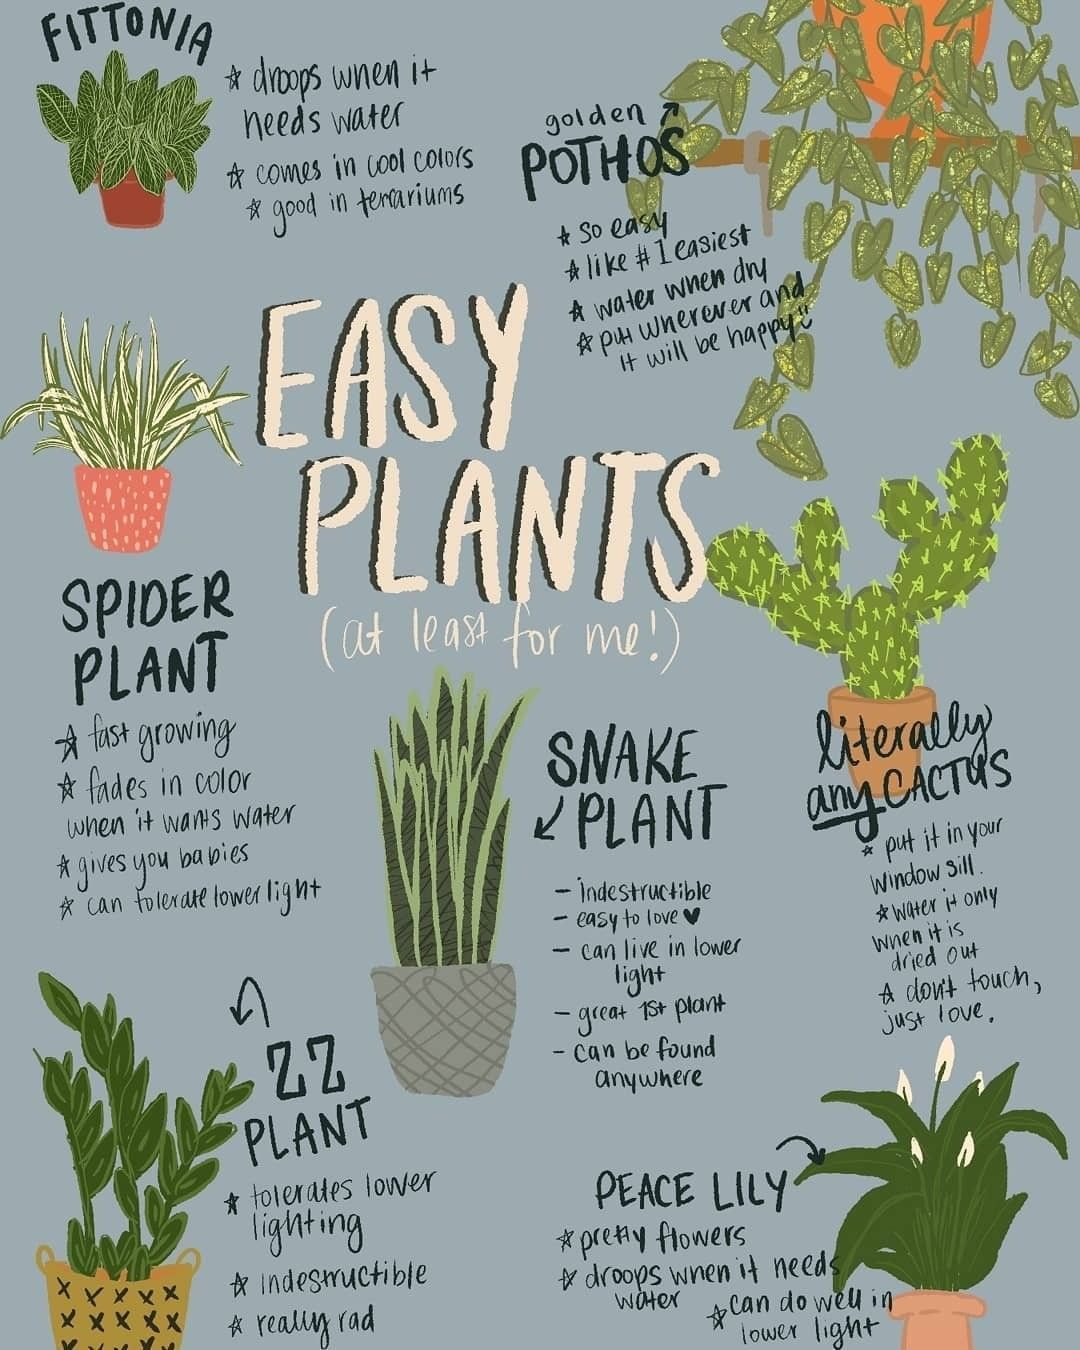 FITTONIA
☆ droops when it
needs water
☆ comes in cool colors
☆ good in terrariums
golden
POTHOS
☆ so easy
☆ like #1 easiest
☆ water when dry
☆ put wherever and
it will be happy!
EASY
PLANTS
(at least for me!)
SPIDER
PLANT
☆ fast growing
☆ fades in color
when it wants water
☆ gives you babies
☆ can tolerate lower light
SNAKE
PLANT
- indestructible
- easy to love ♥
- can live in lower
light
- great 1st plant
- can be found
anywhere
literally
any CACTUS
☆ put it in your
window sill.
☆ water it only
when it is
dried out
☆ don't touch,
just love.
ZZ
PLANT
☆ tolerates lower
lighting
☆ indestructible
☆ really rad
PEACE LILY
☆ pretty flowers
☆ droops when it needs
water
☆ can do well in
lower light